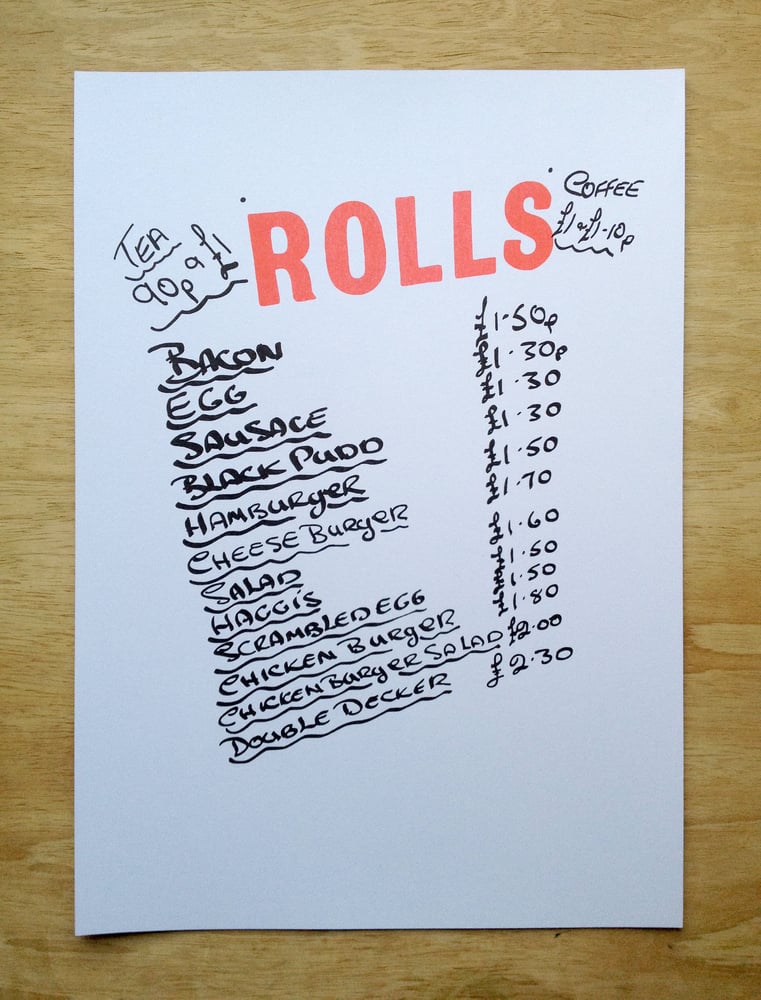 TEA
90p & £1
ROLLS
COFFEE
£1 & £1·10p
BACON £1·50p
EGG £1·30p
SAUSAGE £1·30
BLACK PUDD £1·30
HAMBURGER £1·50
CHEESE BURGER £1·70
SALAD £1·60
HAGGIS £1·50
SCRAMBLED EGG £1·50
CHICKEN BURGER £1·80
CHICKEN BURGER SALAD £2·00
DOUBLE DECKER £2·30